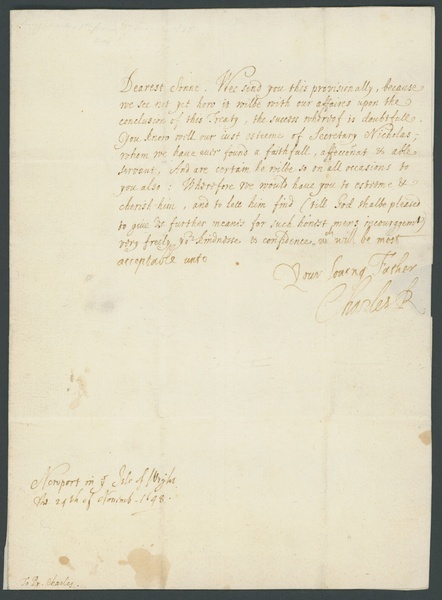 Dearest Sonne. Wee send you this provisionally, because
we see not yet how it wilbe with our affaires upon the
conclusion of this Treaty, the success wherof is doubtfull.
You know well our just esteeme of Secretary Nicholas;
whom we have ever found a faithfull, affeconat & able
servant, And are certain he wilbe so on all occasions to
you also: Wherefore we would have you to esteeme &
cherish him, and to lett him find (till God shalbe pleased
to give us further meanes for such honest mens incouragemt)
very freely yor kindness & confidence, wch will be most
acceptable unto
Your loving Father
Charles R
Newport in ye Isle of Wight
the 24th of Novemb. 1648.
To Pr. Charles.